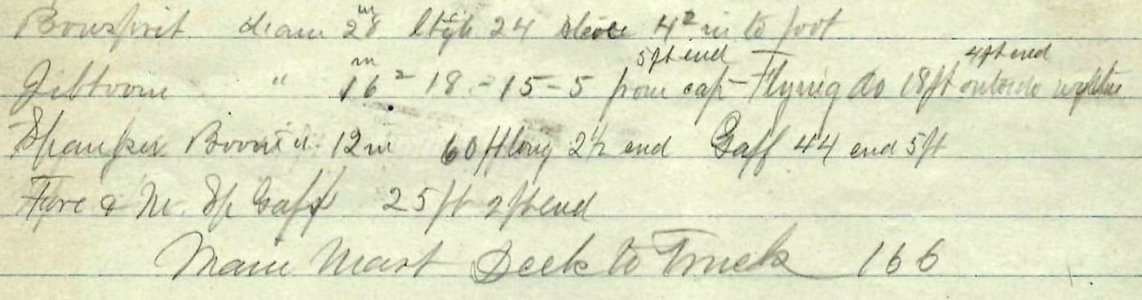 Bowsprit diam 28 in lgth 24 steeve 4² in to foot
Jibboom " 16² in 18 - 15 - 5 from cap 5 ft end - Flying do 18 ft outside 4 ft end
Spanker Boom d. 12 in 60 ft long 2½ end Gaff 44 end 5 ft
Fore & M. Sp Gaffs 25 ft 2 ft end
Main Mast Deck to Truck 166